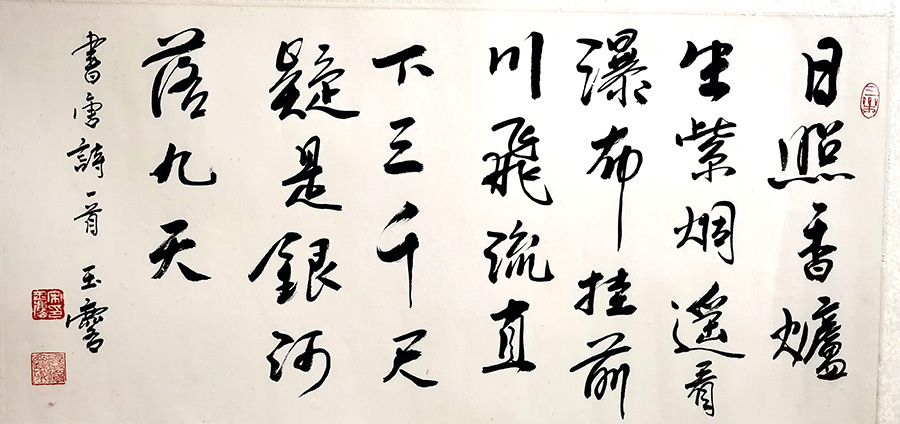 日照香爐
生紫烟遥看
瀑布挂前
川飛流直
下三千尺
疑是銀河
落九天
書唐詩一首 玉